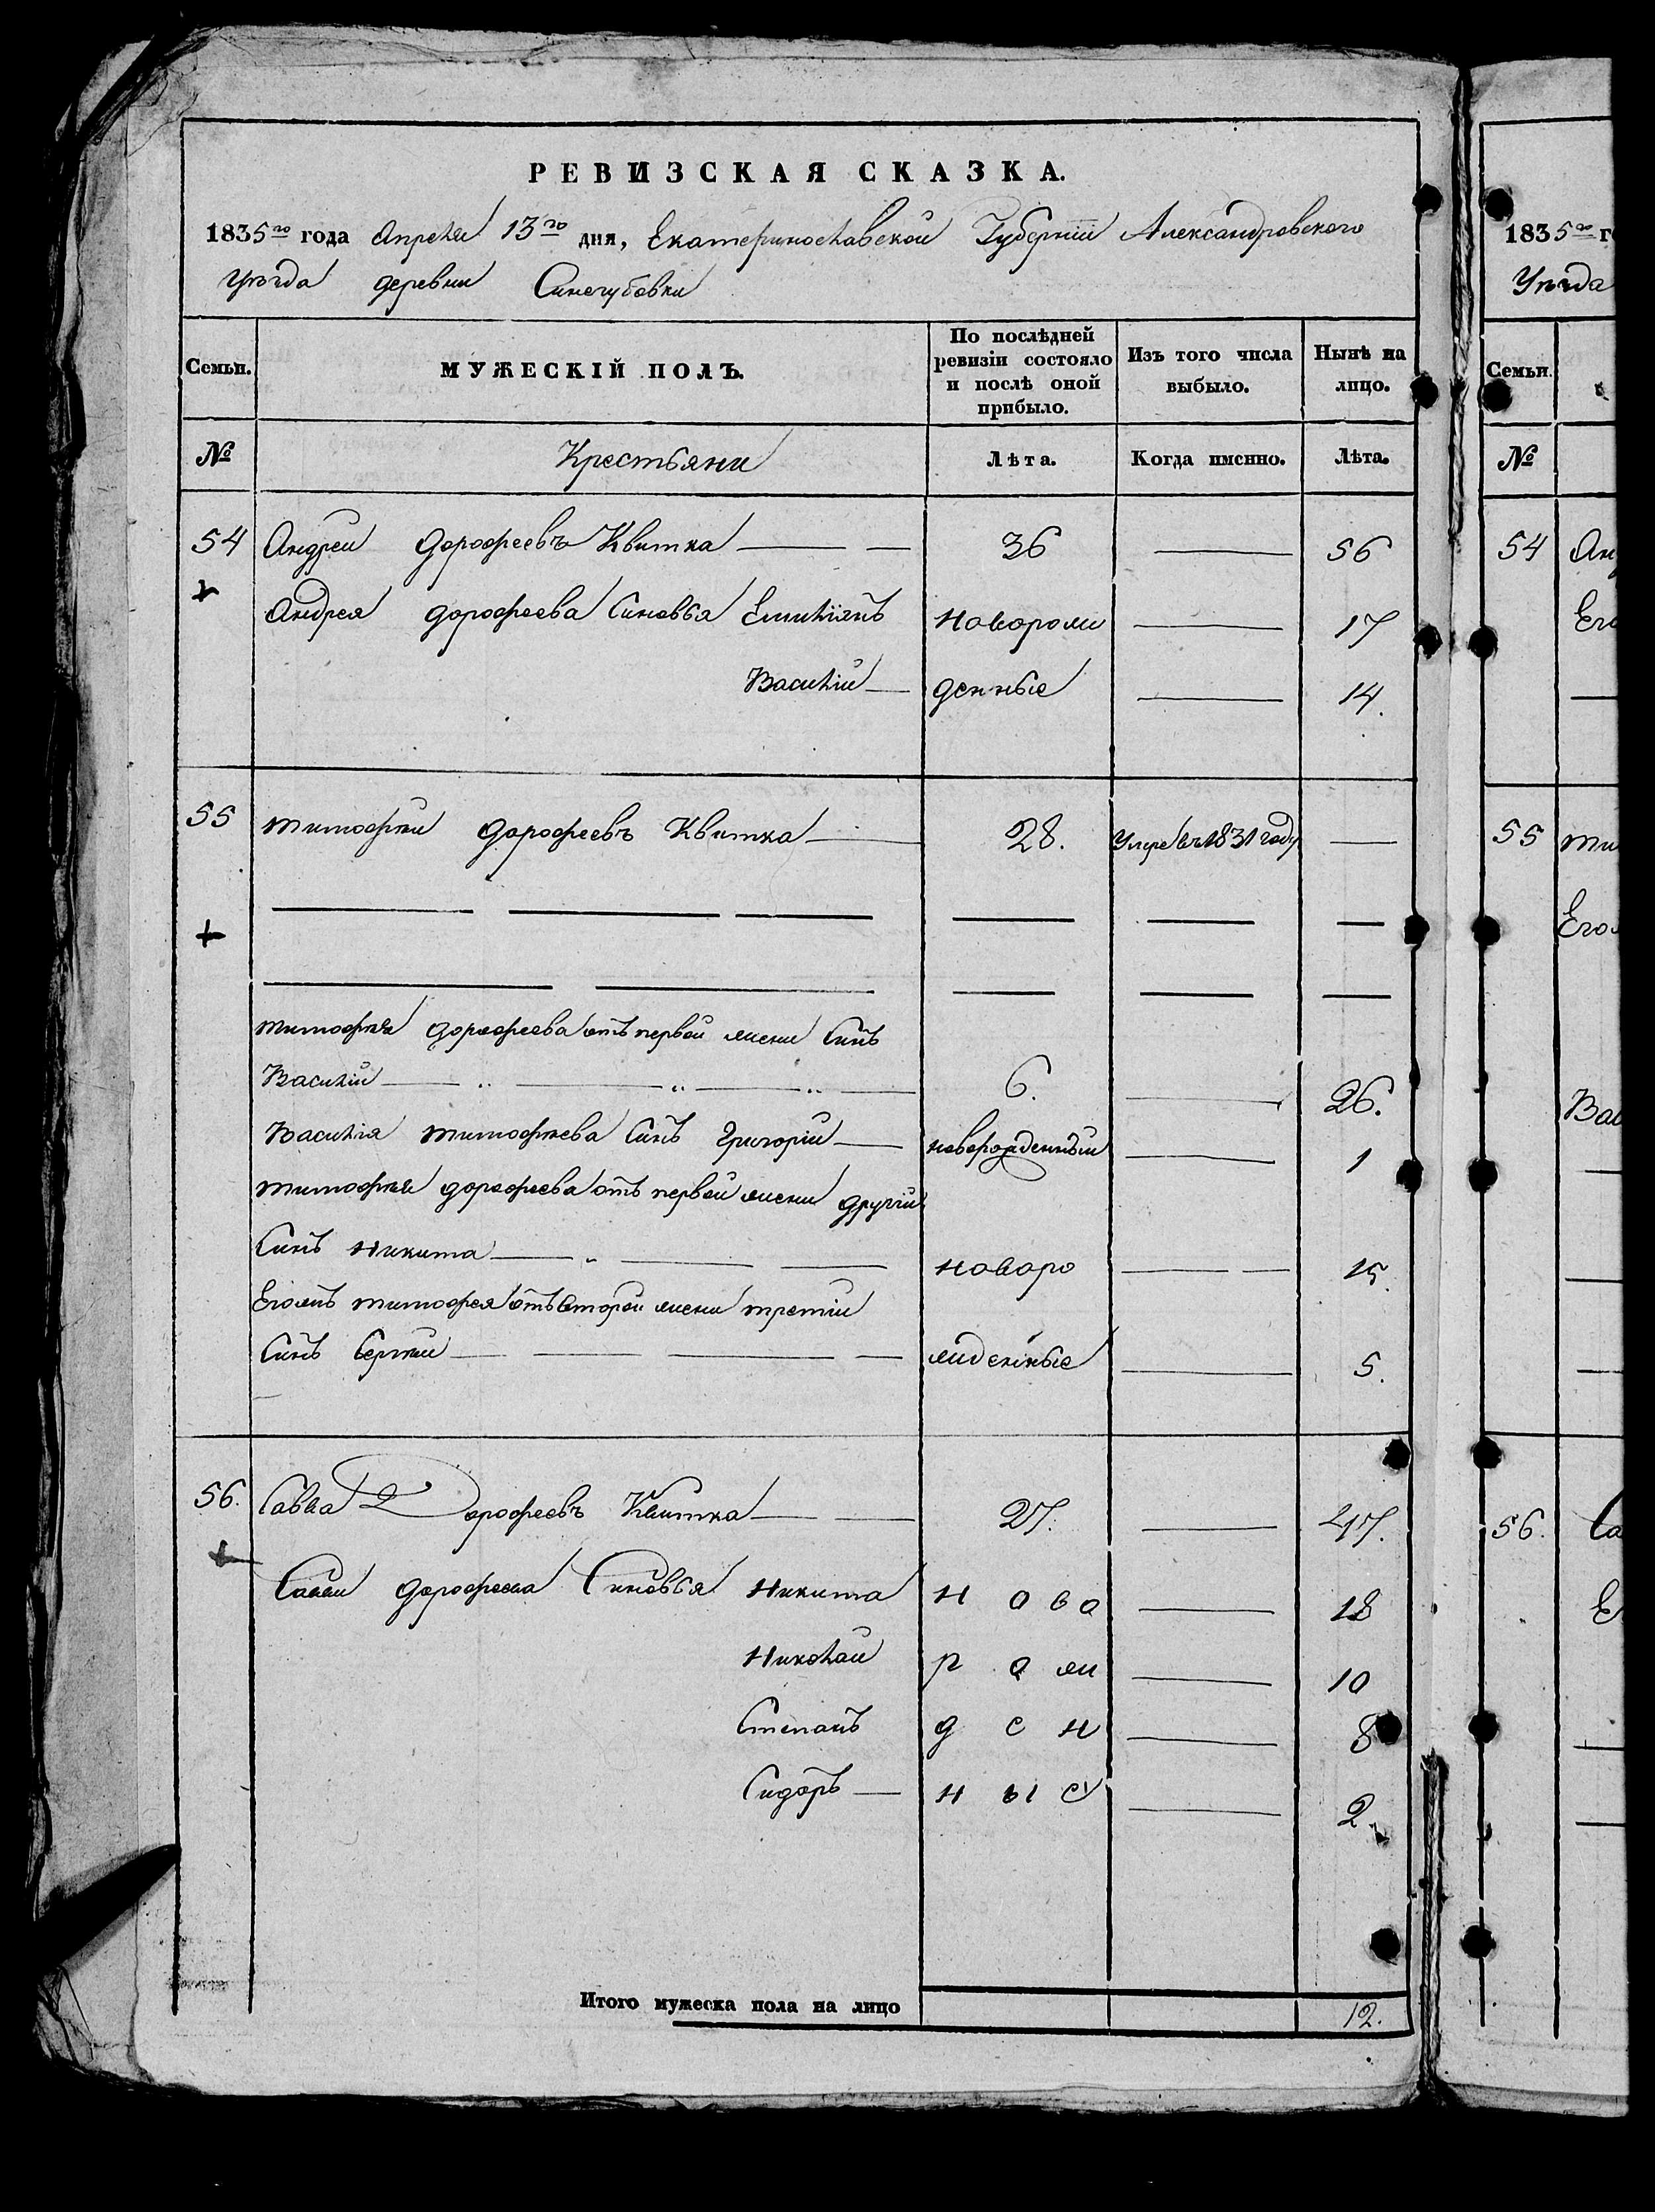 РЕВИЗСКАЯ СКАЗКА.
1835го года Апреля 13го дня, Екатеринославской Губернии Александровского
Уезда деревни Синегубовки
Семьи. МУЖЕСКІЙ ПОЛЪ. По послѣдней ревизіи состояло и послѣ оной прибыло. Изъ того числа выбыло. Нынѣ на лицо.
№ Крестьяни Лѣта. Когда именно. Лѣта.
54 Андрей Дорофеевъ Квитка 36 — 56
Андрея Дорофеева Синовья Емилиянъ новорож — 17
Василий денные — 14.
55 Тимофей Дорофеевъ Квитка 28. Умре въ 1831 году —
Тимофея Дорофеева отъ первой жени Синъ
Василий 6. — 26.
Василия Тимофеева Синъ Григорий новорожденный — 1
Тимофея Дорофеева отъ первой жени другий
Синъ Никита новоро — 15.
Егожъ Тимофея отъ второй жени третий
Синъ Сергей жденные — 5.
56. Савва Дорофеевъ Квитка 27. — 47.
Саввы Дорофеева Синовья Никита ново — 18
Николай рож — 10
Степанъ ден — 8
Сидоръ ные — 2.
Итого мужеска пола на лицо 12.
1835го г
Уезда
Семьи.
№
54 Ан
Его
55 Ти
Его
Вас
56. Са
Е